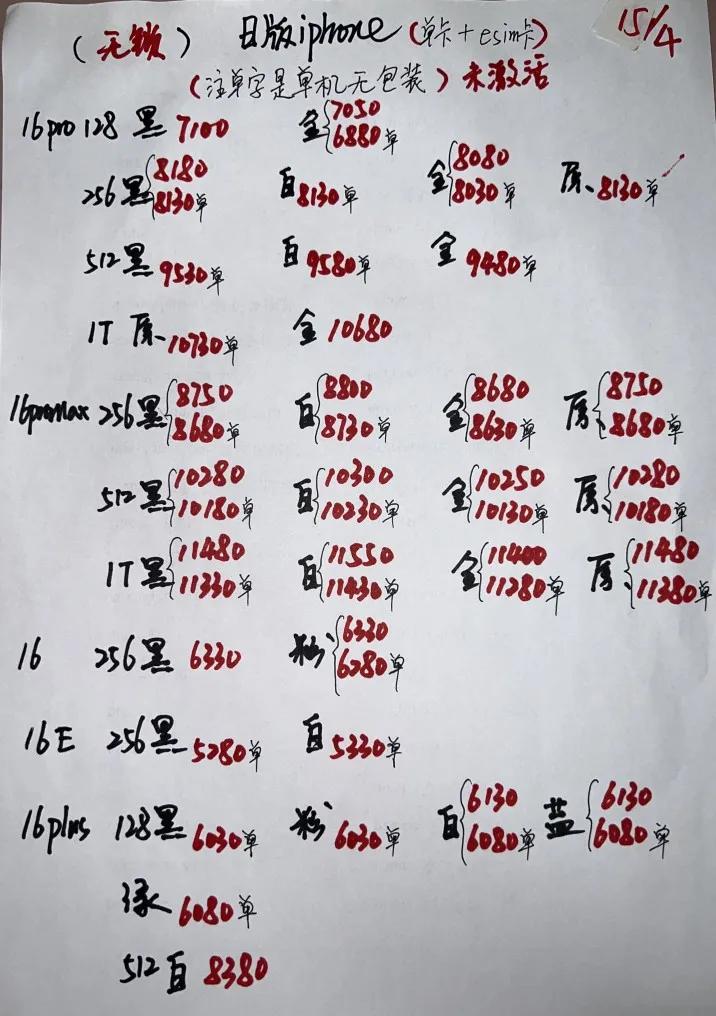 15/4
(无锁) 日版iphone (单卡+esim卡)
(注单字是单机无包装) 未激活
16pro 128 黑 7100 金{7050 6880单
256 黑{8180 8130单 白 8130单 金{8080 8030单 原、8130单
512 黑 9530单 白 9580单 金 9480单
1T 原、10730单 金 10680
16promax 256 黑{8750 8680单 白{8800 8730单 金{8680 8630单 原{8750 8680单
512 黑{10280 10180单 白{10300 10230单 金{10250 10130单 原、{10280 10180单
1T 黑{11480 11330单 白{11550 11430单 金{11400 11280单 原、{11480 11380单
16 256 黑 6330 粉{6330 6280单
16E 256 黑 5280单 白 5330单
16plus 128 黑 6030单 粉 6030单 白{6130 6080单 蓝{6130 6080单
绿 6080单
512 白 8380